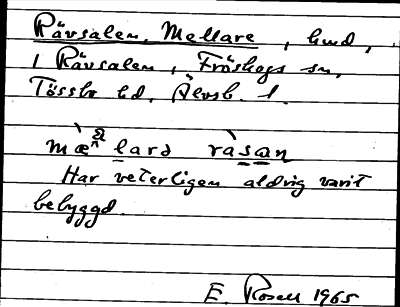 Rävsalen, Mellare, hmd,
i Rävsalen, Fröskogs sn,
Tössbo hd, Älvsb. l.
Har veterligen aldrig varit
bebyggd.
E. Rosell 1965